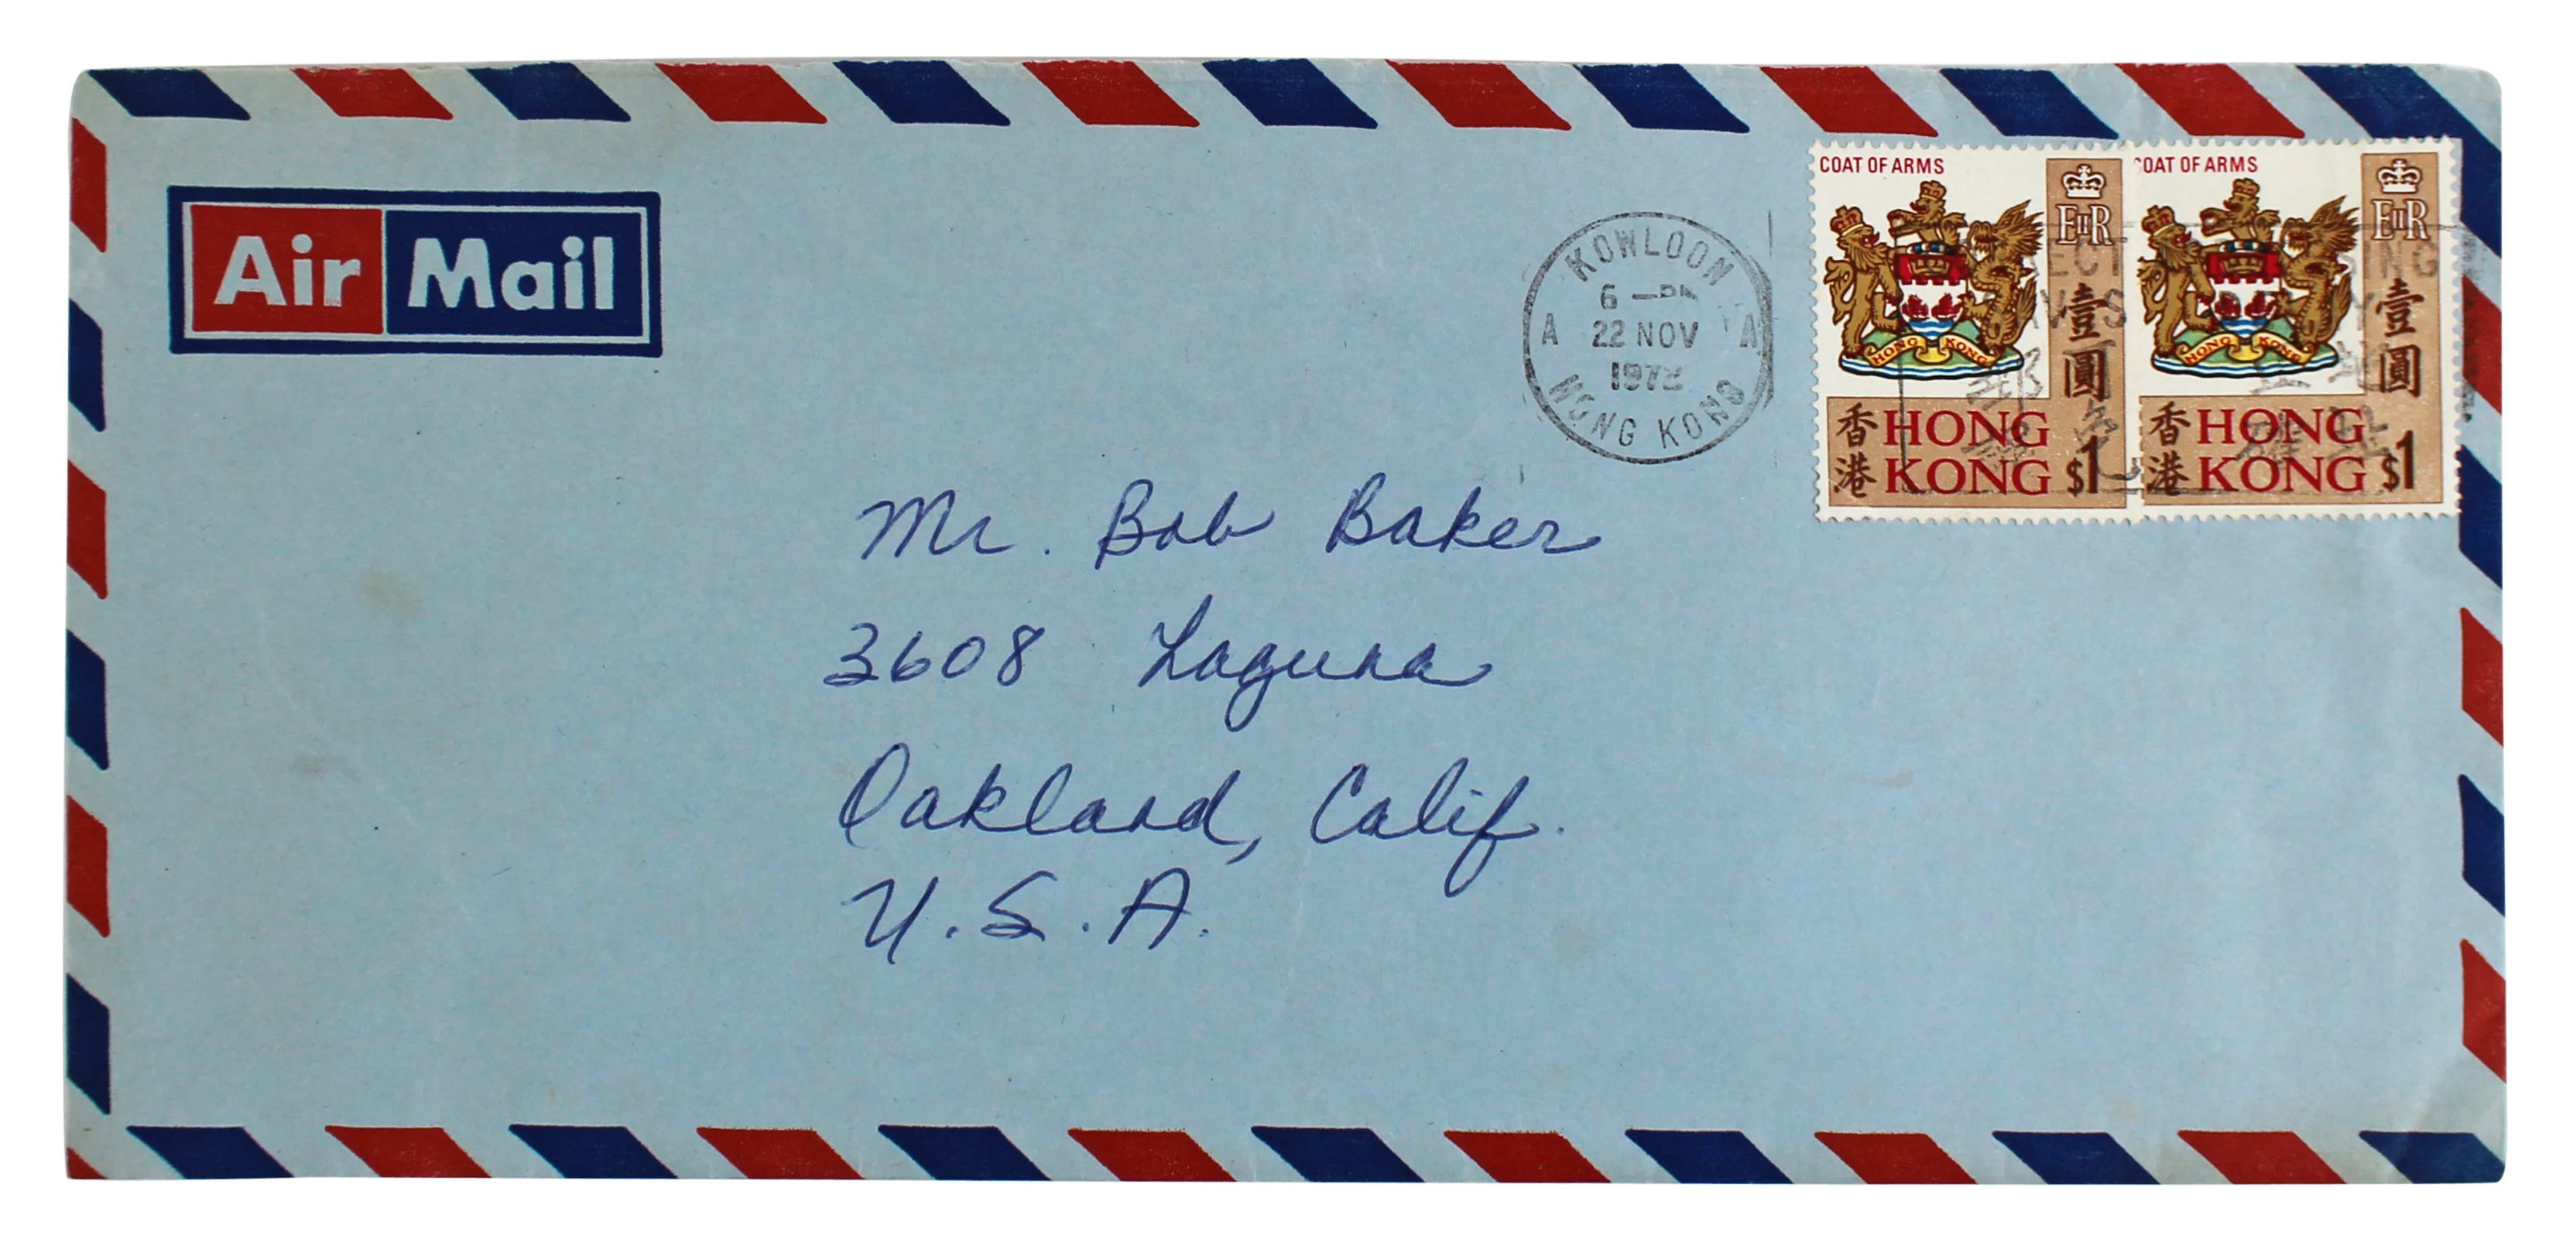 Air Mail
COAT OF ARMS
EIIR
壹圓
香港
HONG
KONG
$1
OAT OF ARMS
EIIR
壹圓
香港
HONG
KONG
$1
KOWLOON
6 –PM
A 22 NOV A
HONG KONG
Mr. Bob Baker
3608 Laguna
Oakland, Calif.
U.S.A.